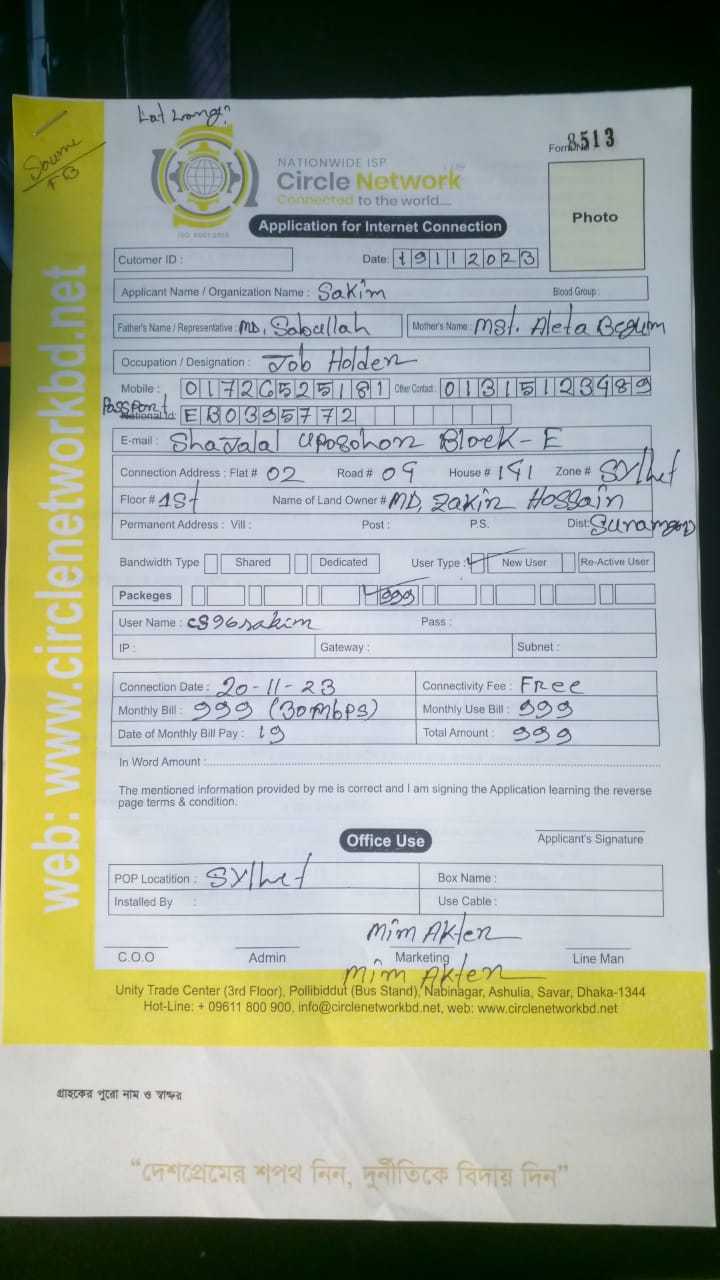 Form No 8513
Source
FB
NATIONWIDE ISP
Circle Network
Connected to the world....
ISO 9001:2015
Application for Internet Connection
Photo
Cutomer ID :
Date: 19112023
Applicant Name / Organization Name : Sakim Blood Group :
Father's Name / Representative : MD, Sabullah Mother's Name : Mst. Aleta Begum
Occupation / Designation : Job Holder
Mobile : 01726525181 Other Contact : 01315123989
Passport
National Id: EB0395772
E-mail : Shajalal Uposohor Block-E
Connection Address : Flat # 02 Road # 09 House # 191 Zone # Sylhet
Floor # 1st Name of Land Owner # MD, Zakir Hossain
Permanent Address : Vill : Post : P.S. Dist:
Bandwidth Type Shared Dedicated User Type : New User Re-Active User
Packeges 999
User Name : cs96sakim Pass :
IP : Gateway : Subnet :
Connection Date : 20-11-23 Connectivity Fee : Free
Monthly Bill : 999 (30mbps) Monthly Use Bill : 999
Date of Monthly Bill Pay : 19 Total Amount : 999
In Word Amount :
The mentioned information provided by me is correct and I am signing the Application learning the reverse
page terms & condition.
Applicant's Signature
Office Use
POP Locatition : Sylhet Box Name :
Installed By : Use Cable :
Mim Akter
C.O.O Admin Marketing Line Man
Mim Akter
Unity Trade Center (3rd Floor), Pollibiddut (Bus Stand), Nabinagar, Ashulia, Savar, Dhaka-1344
Hot-Line: + 09611 800 900, info@circlenetworkbd.net, web: www.circlenetworkbd.net
web: www.circlenetworkbd.net
গ্রাহকের পুরো নাম ও স্বাক্ষর
“দেশপ্রেমের শপথ নিন, দুর্নীতিকে বিদায় দিন”